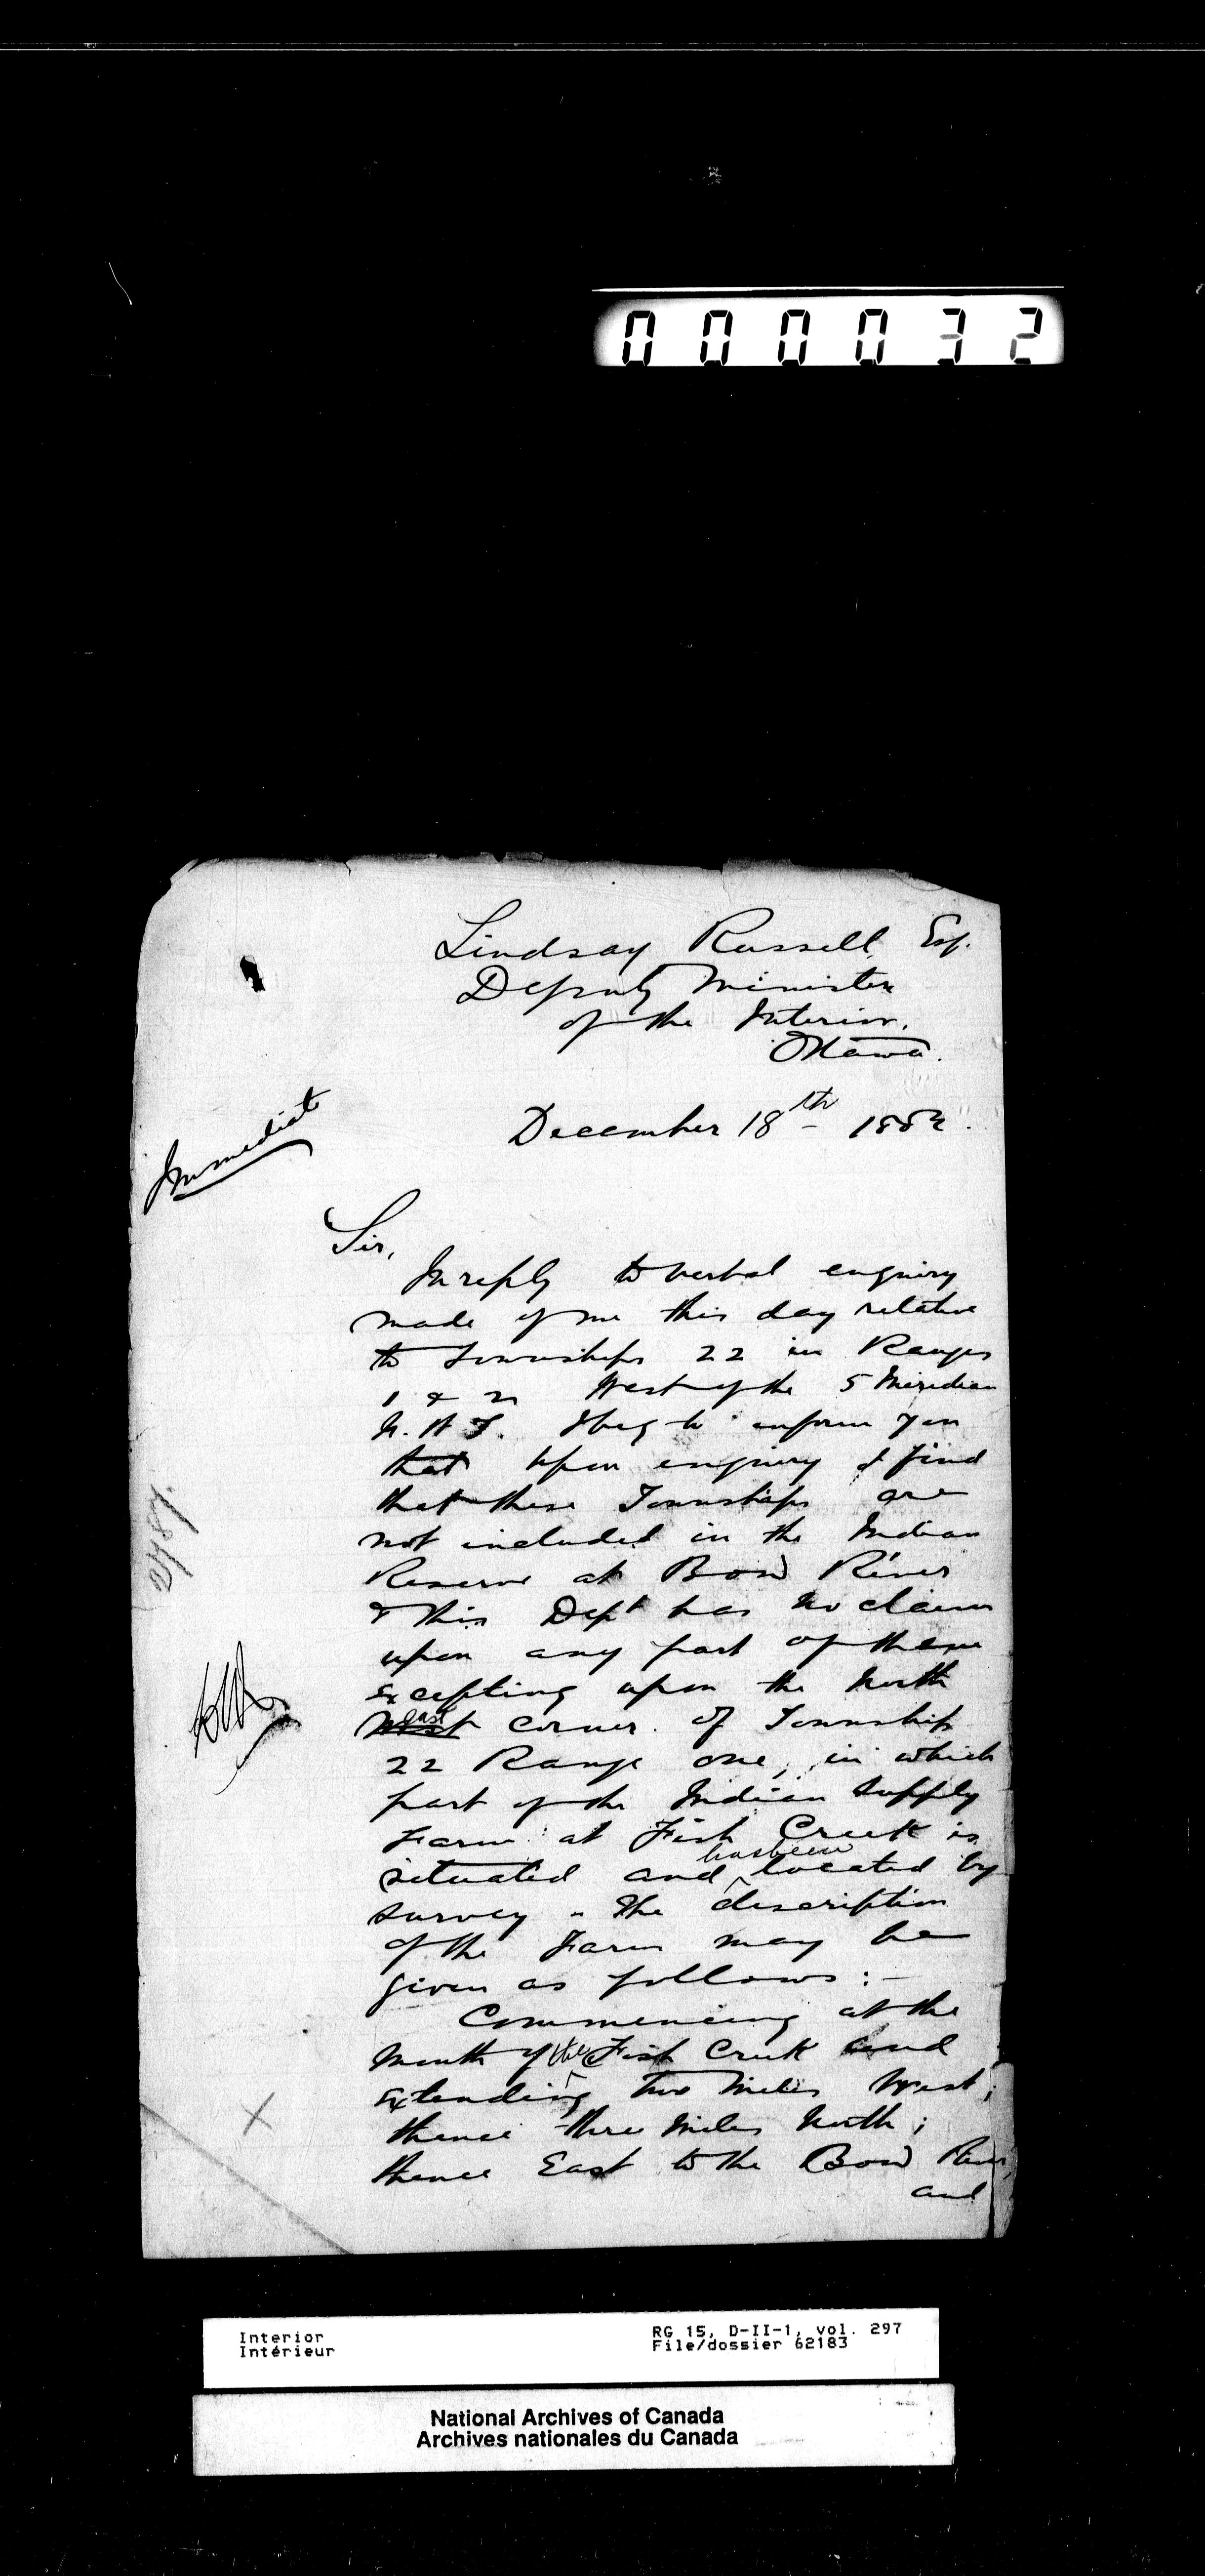 000032
Lindsay Russell, Esq.
Deputy Minister
of the Interior,
Ottawa.
Immediate
December 18th 1882.
Sir,
In reply to verbal enquiry
made of me this day relative
to Townships 22 in Ranges
1 & 2 West of the 5 Meridian
N.W.T. I beg to inform you
that upon enquiry I find
that these Townships are
not included in the Indian
Reserve at Bow River
& this Dept has no claim
upon any part of them
excepting upon the North
West east corner of Township
22 Range one, in which
part of the Indian Supply
Farm at Fish Creek is
situated and has been located by
survey. The description
of the Farm may be
given as follows:-
Commencing at the
mouth of the Fish Creek and
extending two miles West;
thence three miles North;
thence East to the Bow River,
and
Interior
Intérieur
RG 15, D-II-1, vol. 297
File/dossier 62183
National Archives of Canada
Archives nationales du Canada